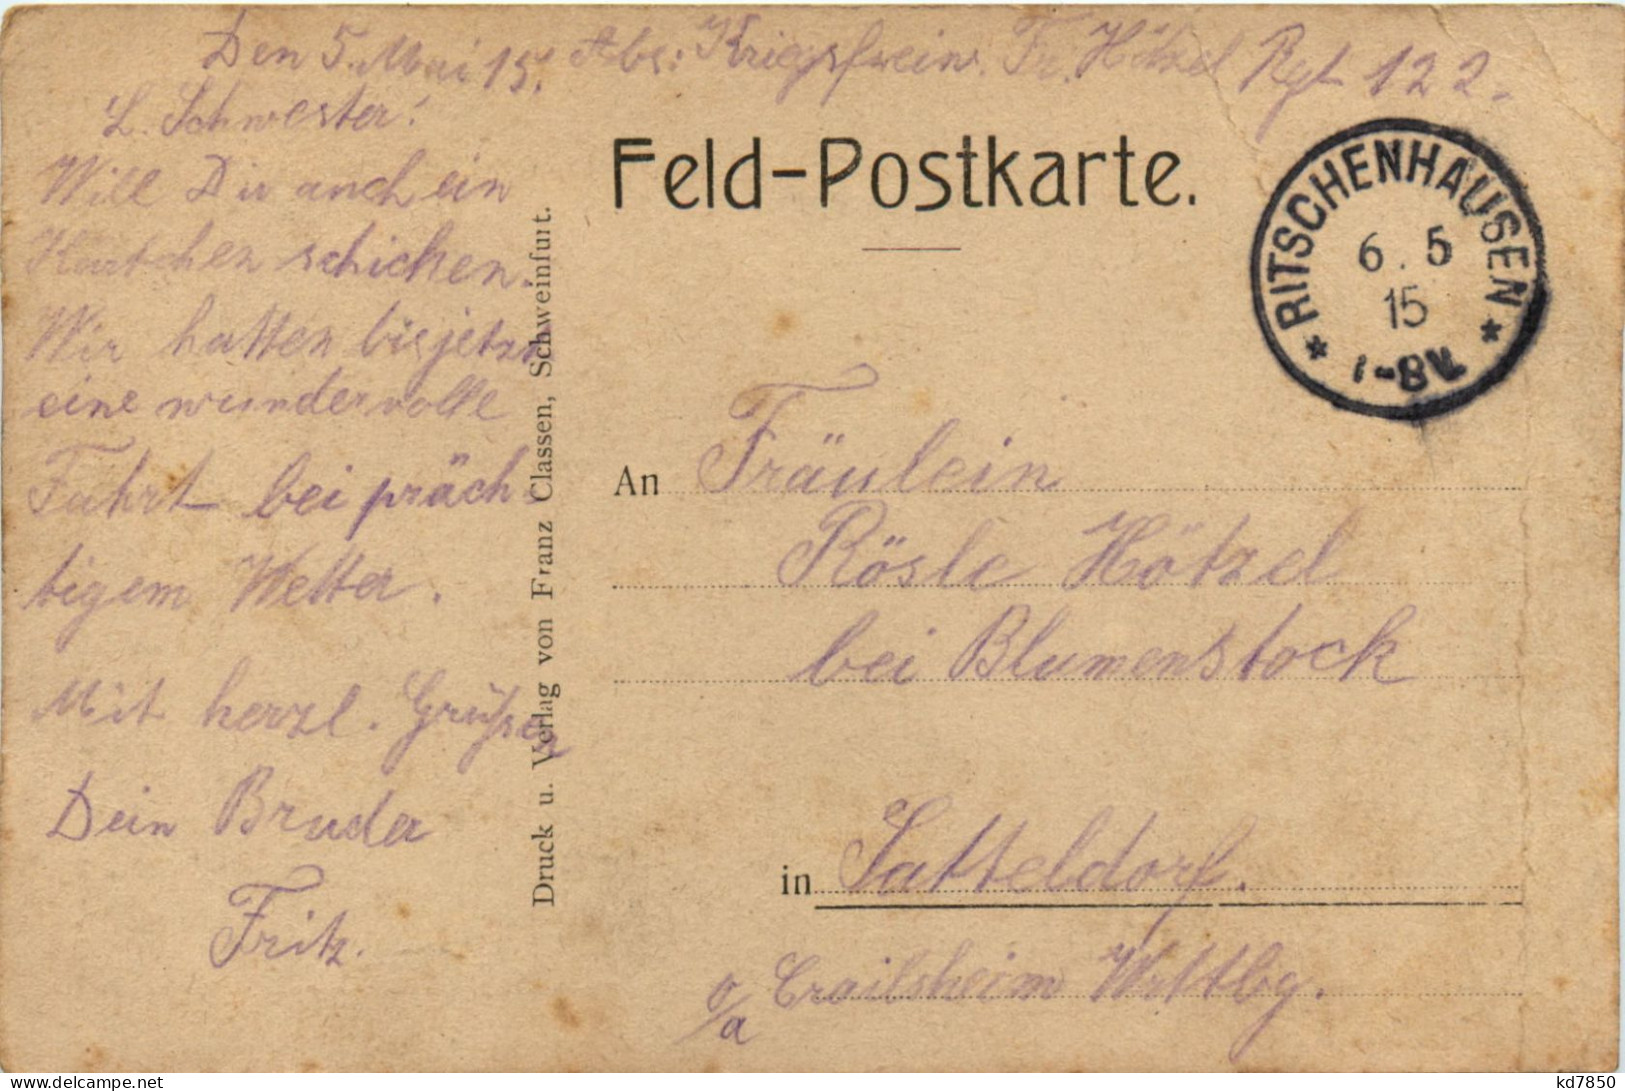 Den 5. Mai 15. Abs: Kriegsfreiw. Fr. Hötzel Rgt 122.
L. Schwester!
Will Dir auch ein
Kärtchen schicken.
Wir hatten bis jetzt
eine wundervolle
Fahrt bei präch-
tigem Wetter.
Mit herzl. Grüßen
Dein Bruder
Fritz.
Druck u. Verlag von Franz Classen, Schweinfurt.
Feld-Postkarte.
RITSCHENHAUSEN
6. 5
15
* 1-8V. *
An Fräulein
Rösle Hötzel
bei Blumenstock
in Satteldorf.
o/a Crailsheim Wrttbg.
kd7850